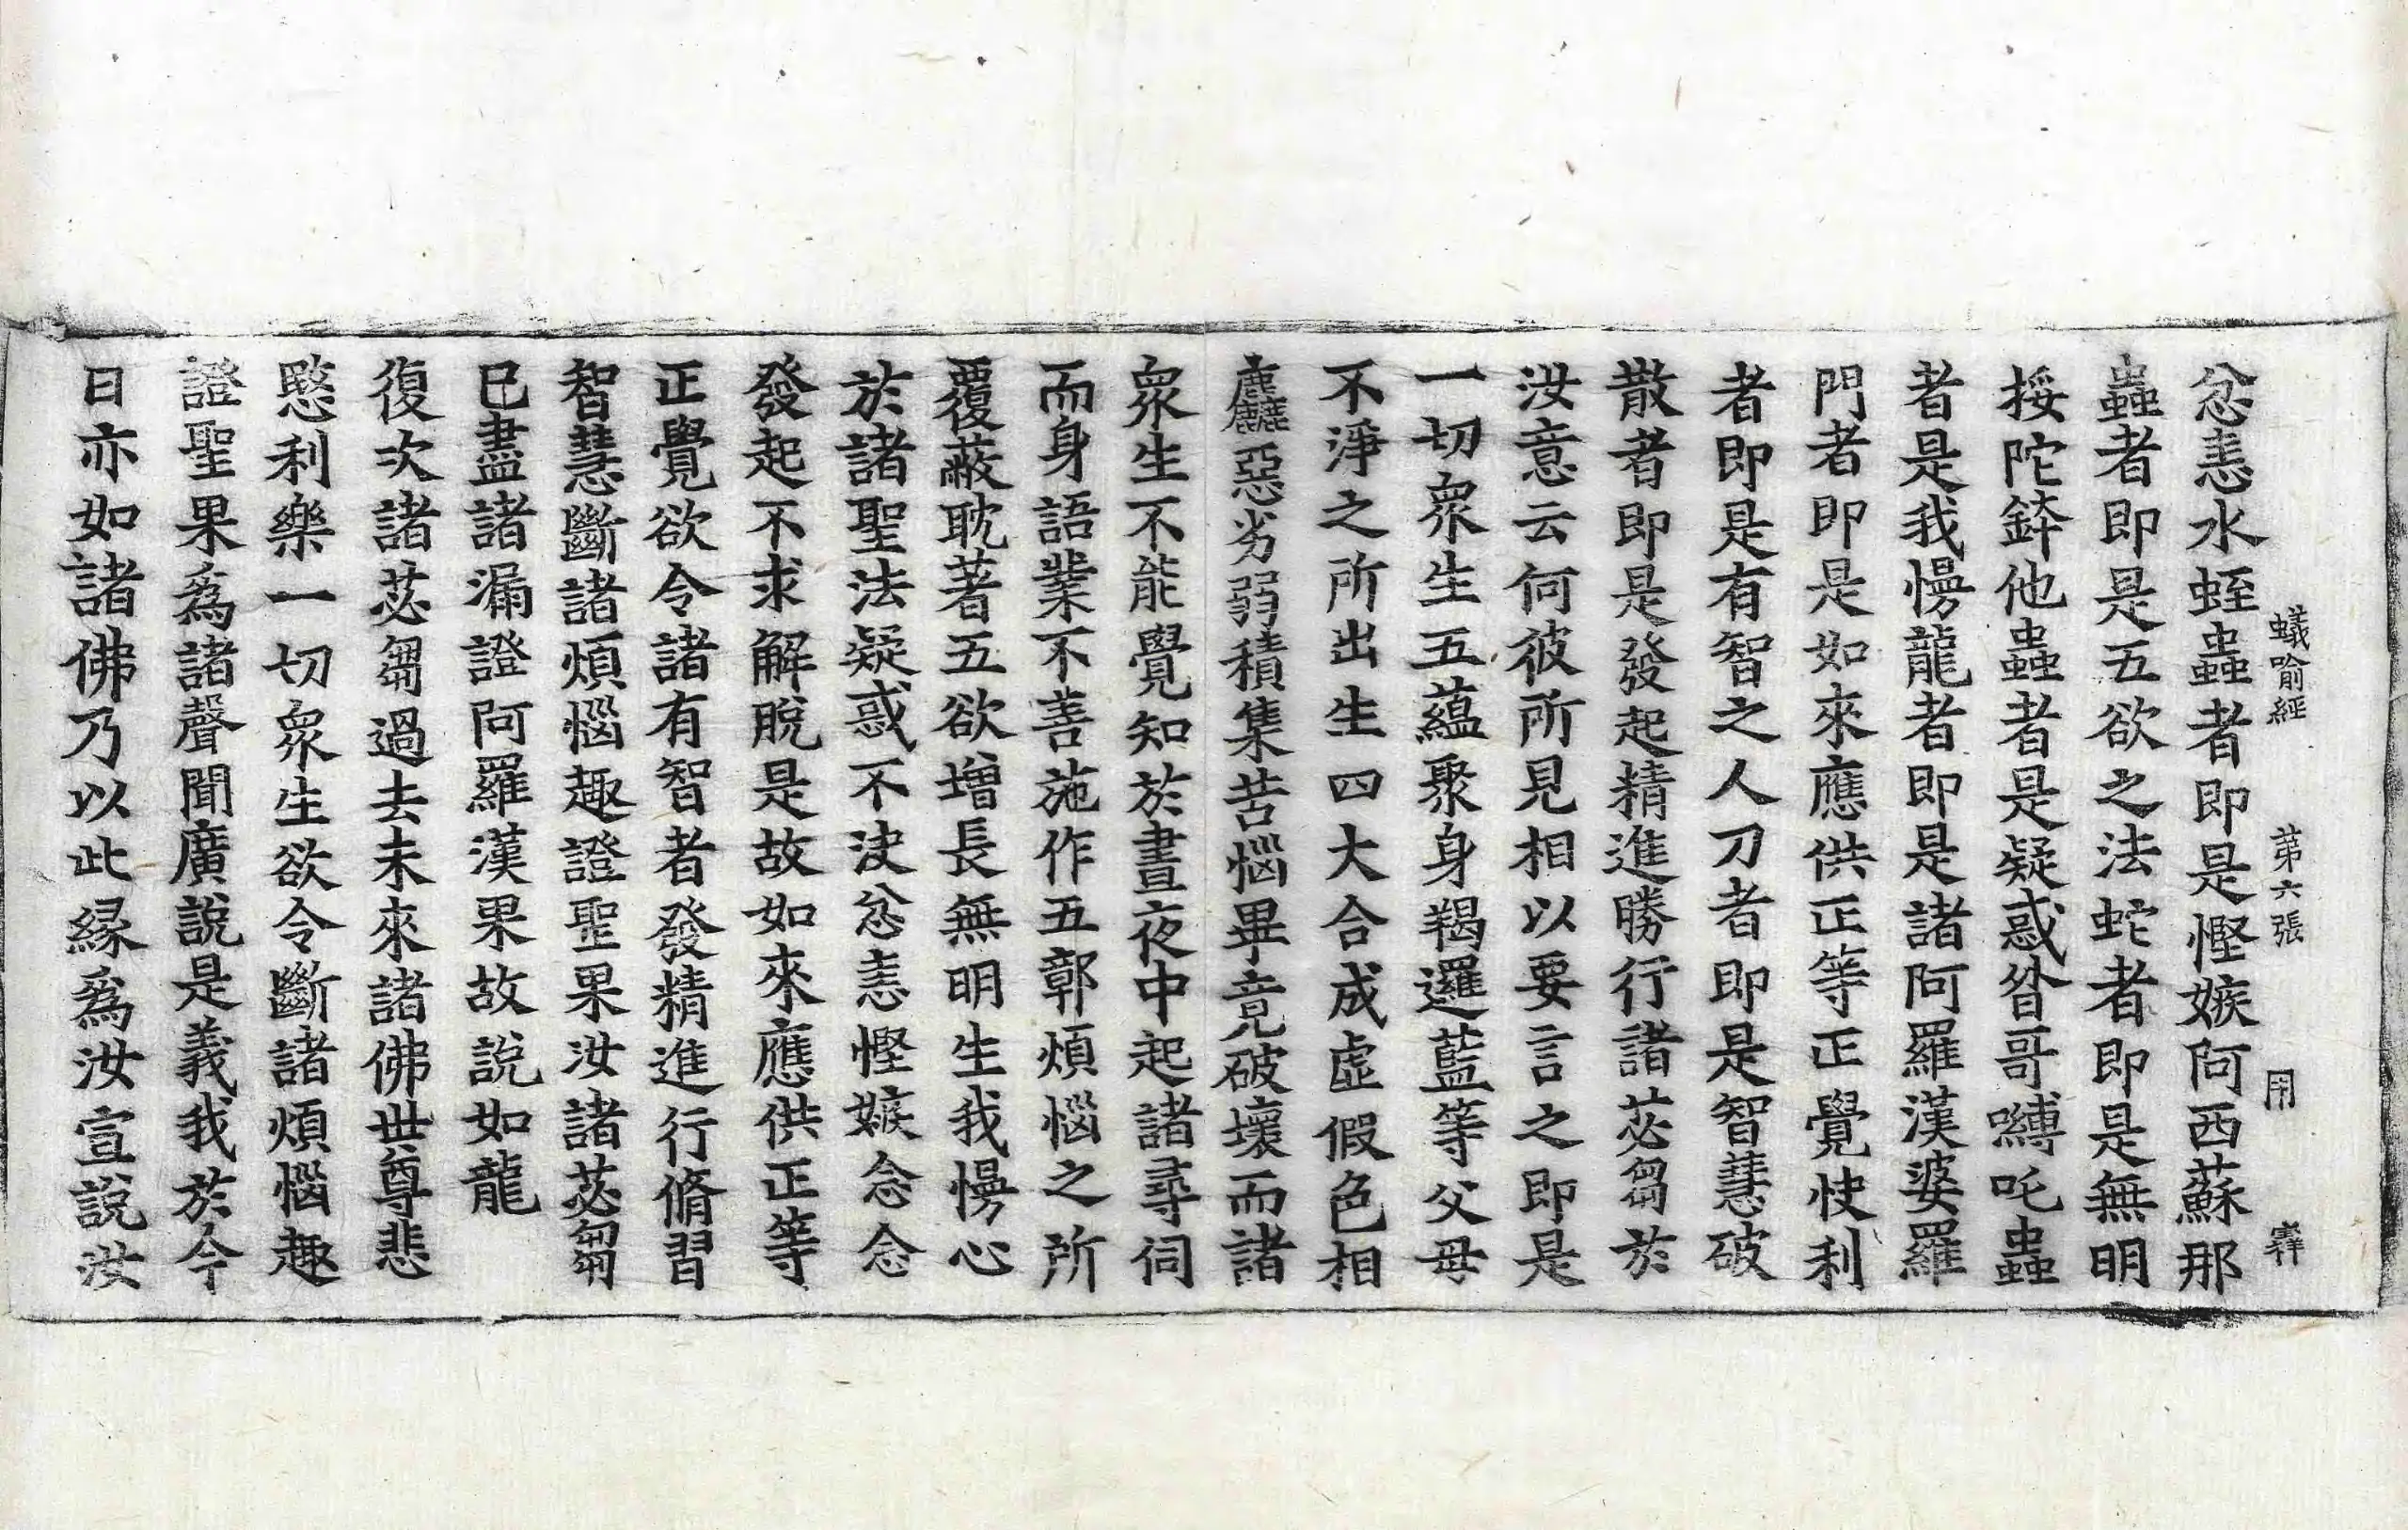 蟻喻經 第六張 用
忿恚水蛭蟲者即是慳嫉阿西蘇那
蟲者即是五欲之法蛇者即是無明
挼陀鉾他蟲者是疑惑昝哥嚩吒蟲
者是我慢龍者即是諸阿羅漢婆羅
門者即是如來應供正等正覺快利
者即是有智之人刀者即是智慧破
散者即是發起精進勝行諸苾芻於
汝意云何彼所見相以要言之即是
一切衆生五蘊聚身羯邏藍等父母
不淨之所出生四大合成虛假色相
麤惡劣弱積集苦惱畢竟破壞而諸
衆生不能覺知於晝夜中起諸尋伺
而身語業不善施作五鄣煩惱之所
覆蔽耽著五欲增長無明生我慢心
於諸聖法疑惑不決忿恚慳嫉念念
發起不求解脫是故如來應供正等
正覺欲令諸有智者發精進行脩習
智慧斷諸煩惱趣證聖果汝諸苾芻
已盡諸漏證阿羅漢果故說如龍
復次諸苾芻過去未來諸佛世尊悲
愍利樂一切衆生欲令斷諸煩惱趣
證聖果爲諸聲聞廣說是義我於今
日亦如諸佛乃以此緣爲汝宣說汝